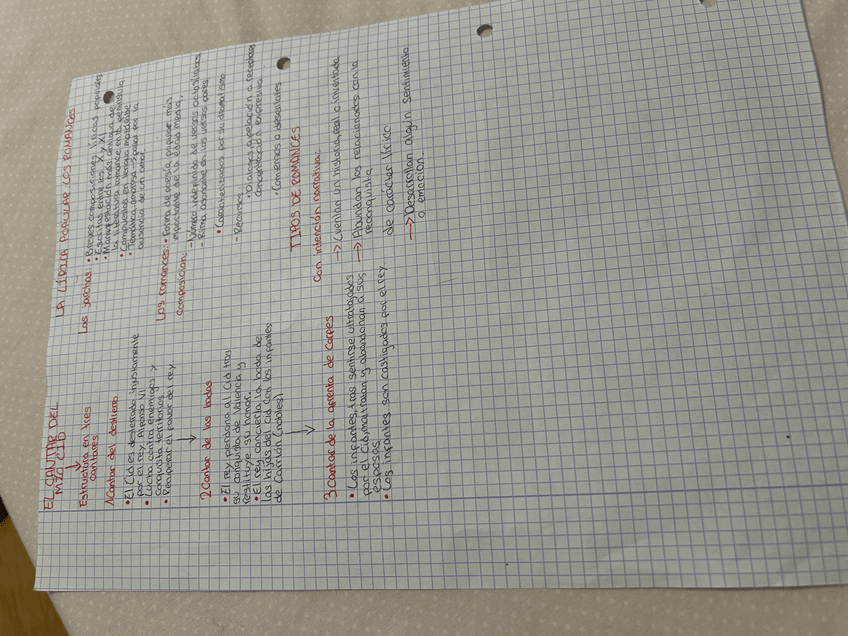 EL CANTAR DEL
MIO CID
Estructura en tres
cantares
1 Cantar del destierro
• El Cid es desterrado injustamente
por el rey Alfonso VI
• Lucha contra enemigos y
conquista territorios.
• Recuperar el favor del rey
2 Cantar de las bodas
• El rey perdona al Cid tras
su conquista de Valencia y
restituye su honor.
• El rey concierta la boda de
las hijas del Cid con los infantes
de Carrión (nobles)
3 Cantar de la afrenta de Corpes
• Los infantes, tras sentirse ultrajados
por el Cid, maltratan y abandonan a sus
esposas
• Los infantes son castigados por el rey
LA LÍRICA POPULAR: LOS ROMANCES
Las jarchas: • Breves composiciones líricas populares
• Escritas entre los X y XI
• Manifestación más antigua de
la literatura romance en la península
• Compuestas en lengua mozárabe
• Temática amorosa → pena por la
ausencia de un amor.
Los romances: • forma de poesía popular más
importante de la edad media,
composición: - Número indefinido de versos octosílabos
- Rima asonante en los versos pares
• Caracterizados por su dramatismo
- Recursos
• Dialogos, apelación a receptores
concentración expresiva.
• Comienzos o desenlaces
TIPOS DE ROMANCES
Con intención narrativa:
→ Cuentan un historia, real o inventada
→ Abundan los relacionados con la
reconquista
de caracter lírico
→ Desarrollan algún sentimiento
o emoción.